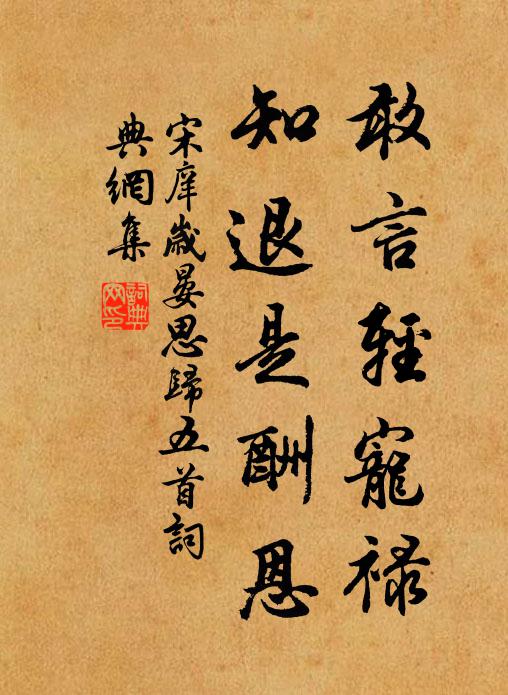 敢言輕寵祿
知退是酬恩
宋庠歲晏思歸五首詞
典網集
詞典網印